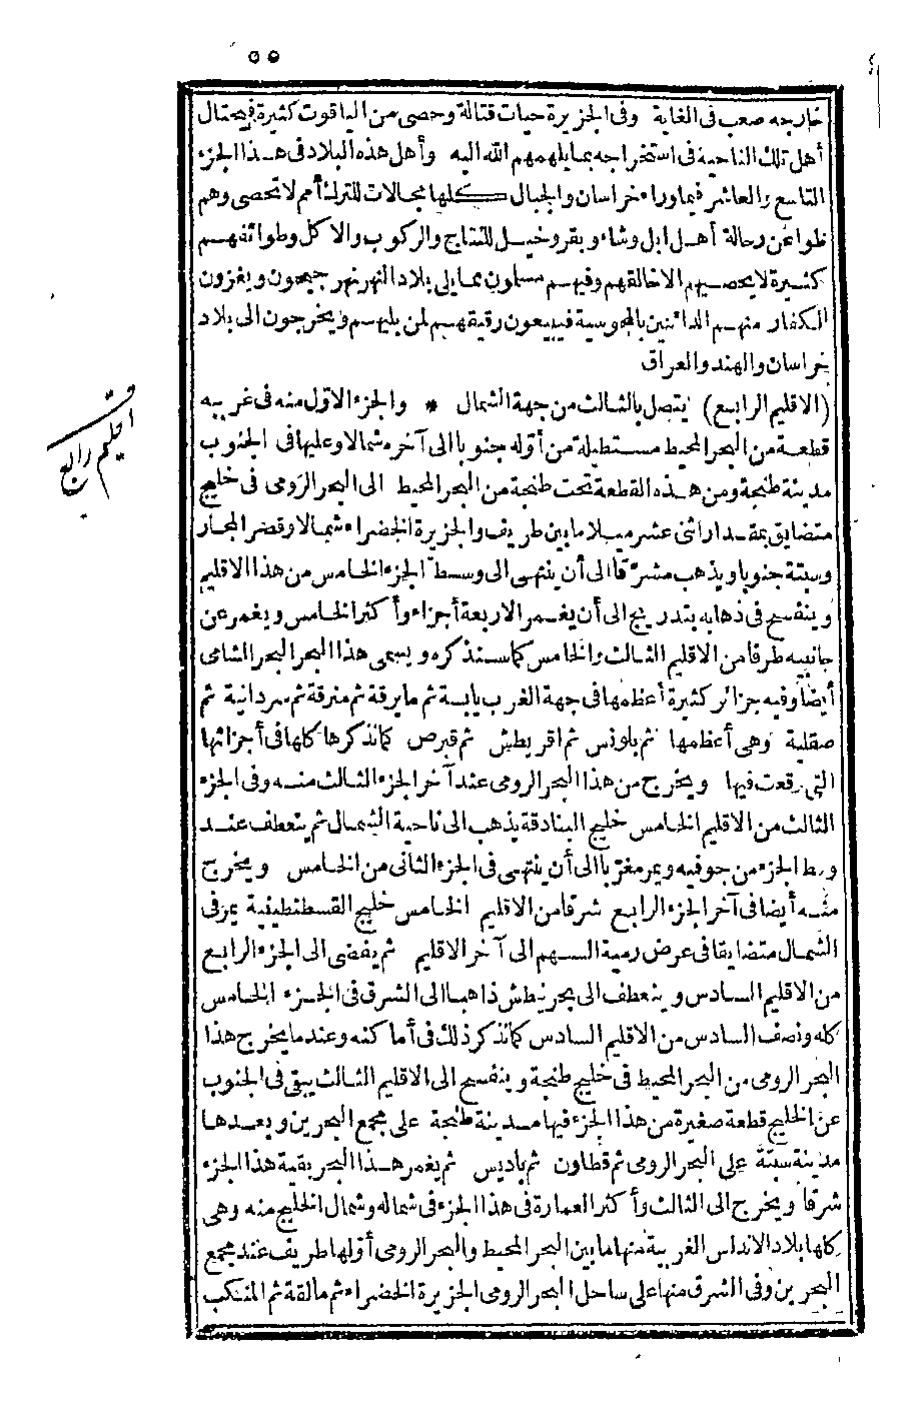 ٥٥
خارجه صعب فى الغاية وفى الجزيرة حيات قتالة وحصى من الياقوت كثيرة فيحتال
أهل تلك الناحية فى استخراجه بما يلهمهم الله اليه وأهل هذه البلاد فى هذا الجزء
التاسع والعاشر فيما وراء خراسان والجبال كلها مجالات للترك أمم لا تحصى وهم
ظواعن رحالة أهل ابل وشاء وبقر وخيل للنتاج والركوب والاكل وطوائفهم
كثيرة لا يحصيهم الا خالقهم وفيهم مسلمون مما يلى بلاد النهر نهر جيحون ويغزون
الكفار منهم الدائنين بالمجوسية فيبيعون رقيقهم لمن يليهم ويخرجون الى بلاد
خراسان والهند والعراق
(الاقليم الرابع) يتصل بالثالث من جهة الشمال * والجزء الاول منه فى غربيه
قطعة من البحر المحيط مستطيلة من أوله جنوبا الى آخره شمالا وعليها فى الجنوب
مدينة طنجة ومن هذه القطعة تحت طنجة من البحر المحيط الى البحر الرومى فى خليج
متضايق بمقدار اثنى عشر ميلا ما بين طريف والجزيرة الخضراء شمالا وقصر المجاز
وسبتة جنوبا ويذهب مشرقا الى أن ينتهى الى وسط الجزء الخامس من هذا الاقليم
وينفسح فى ذهابه بتدريج الى أن يغمر الاربعة أجزاء وأكثر الخامس ويغمر عن
جانبيه طرفا من الاقليم الثالث والخامس كما سنذكره ويسمى هذا البحر البحر الشامى
أيضا وفيه جزائر كثيرة أعظمها فى جهة الغرب يابسة ثم مايرقة ثم منرقة ثم سردانية ثم
صقلية وهى أعظمها ثم بلونس ثم اقريطش ثم قبرص كما نذكرها كلها فى أجزائها
التى وقعت فيها ويخرج من هذا البحر الرومى عند آخر الجزء الثالث منه وفى الجزء
الثالث من الاقليم الخامس خليج البنادقة يذهب الى ناحية الشمال ثم ينعطف عند
وسط الجزء من جوفيه ويمر مغربا الى أن ينتهى فى الجزء الثانى من الخامس ويخرج
منه أيضا فى آخر الجزء الرابع شرقا من الاقليم الخامس خليج القسطنطينية يمر فى
الشمال متضايقا فى عرض رمية السهم الى آخر الاقليم ثم يفضى الى الجزء الرابع
من الاقليم السادس وينعطف الى بحر نيطش ذاهبا الى الشرق فى الجزء الخامس
كله ونصف السادس من الاقليم السادس كما نذكر ذلك فى أماكنه وعندما يخرج هذا
البحر الرومى من البحر المحيط فى خليج طنجة وينفسح الى الاقليم الثالث يبقى فى الجنوب
عن الخليج قطعة صغيرة من هذا الجزء فيها مدينة طنجة على مجمع البحرين وبعدها
مدينة سبتة على البحر الرومى ثم قطاون ثم باديس ثم يغمر هذا البحر بقية هذا الجزء
شرقا ويخرج الى الثالث وأكثر العمارة فى هذا الجزء فى شماله وشمال الخليج منه وهى
كلها بلاد الاندلس الغربية منها ما بين البحر المحيط والبحر الرومى أولها طريف عند مجمع
البحرين وفى الشرق منها على ساحل البحر الرومى الجزيرة الخضراء ثم مالقة ثم المنكب
اقليم رابع